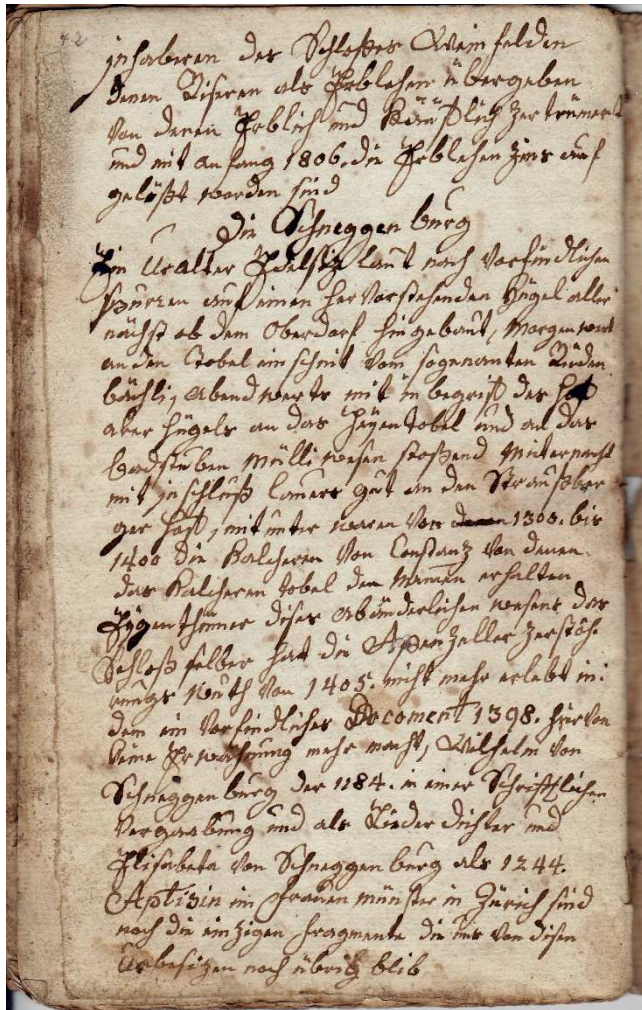 42
inhaberen des Schloßes Weinfelden
denen Riseren als Erblehen übergeben
von denen Erblich und Käuflich zertrümert
und mit anfang 1806. die Erblehen Zins auf
gelößt worden sind
Die Schneggenburg
Ein Uralter Edelsiz laut noch vorfindlichen
spurren auf einen hervorstehenden Hügel aller
nächst ob dem Oberdorf hingebaut, Morgenwert
an den Tobel einschnit vom sogenanten
bächli, abendwerts mit inbegrif des
aker Hügels an das tobel und an das
badstuben Mülli wesen stoßend Miternacht
mit inschluß lauers gut an den Straußber
ger Host, mitunter waren von 1300. bis
1400 die Kalcheren von Constanz von denen
das Kalcheren tobel den Nammen erhalten
Eÿgenthümer dises abänderlichen wesens das
Schloß selber hat die Apenzeller Zerstöh
rungs Wuth von 1405. nicht mehr erlebt in
dem ein vorfindliches Document 1398. hiervon
keine Erwähnung mehr macht, Wilhelm von
Schneggenburg der 1184. in einer Schriftlichen
Vergaabung und als Lieder dichter und
Elisabeta von Schneggenburg als 1244.
Aptißin im Frauen münster in Zürich sind
noch die einzigen fragmente die uns von disen
besizen noch übrig blib